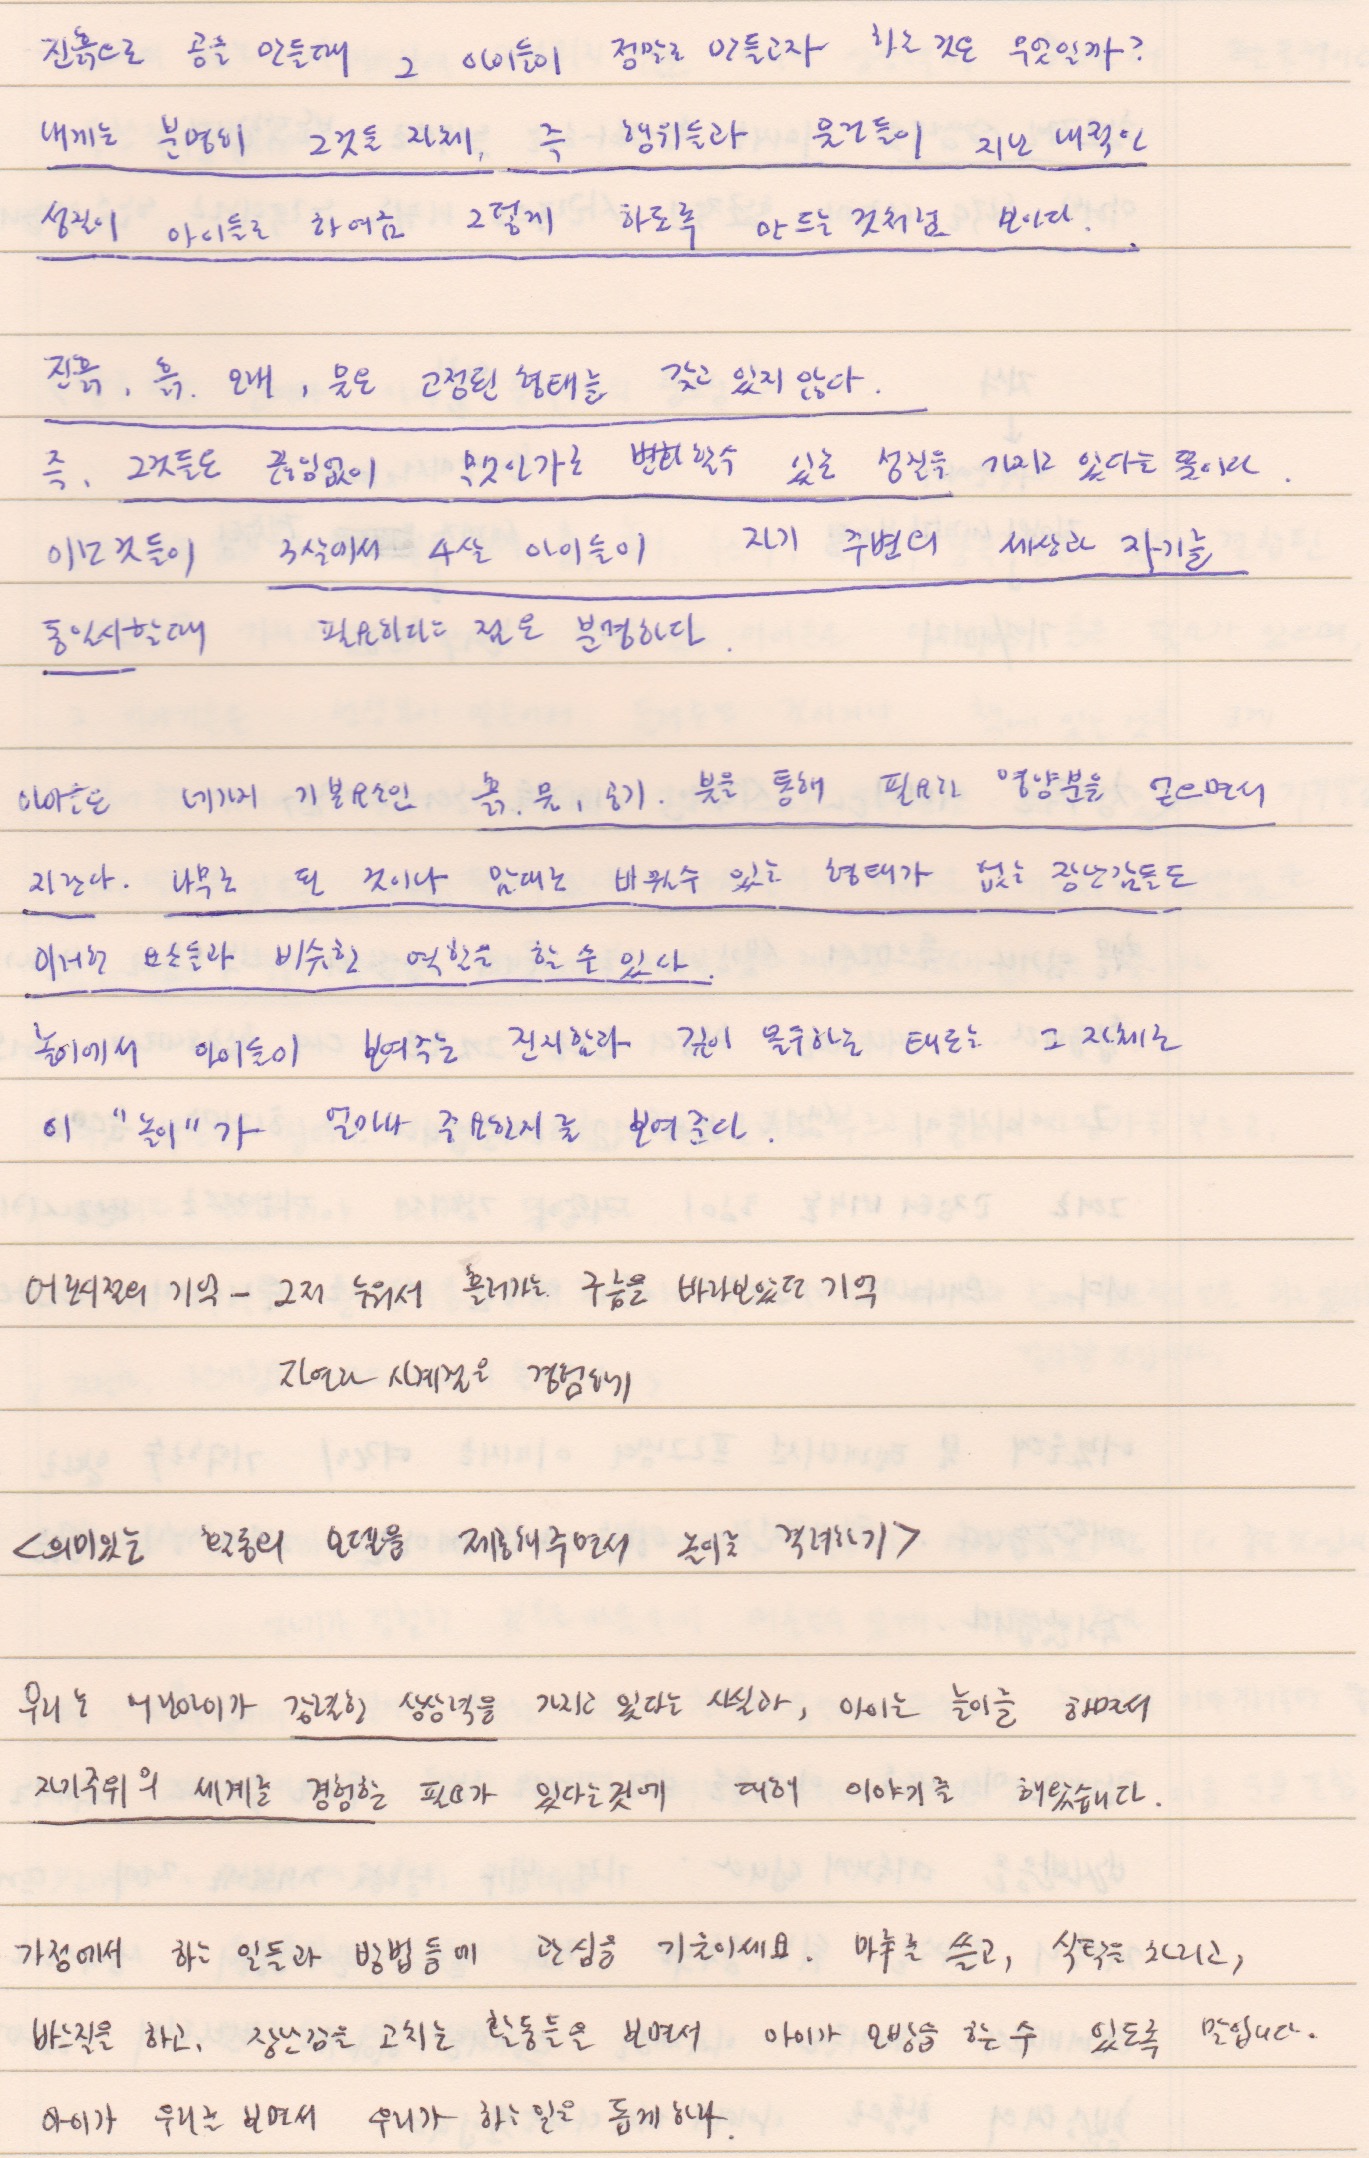 진흙으로 공을 만들때 그 아이들이 정말로 만들고자 하는 것은 무엇일까?
내게는 분명히 그것들 자체, 즉 행위들과 물건들이 지닌 내적인
성질이 아이들로 하여금 그렇게 하도록 만드는 것처럼 보인다.
진흙, 흙, 모래, 물은 고정된 형태를 갖고 있지 않다.
즉, 그것들은 끊임없이 무엇인가로 변화할수 있는 성질을 가지고 있다는 뜻이다.
이런것들이 3살에서 4살 아이들이 자기 주변의 세상과 자기를
동일시할때 필요하다는 점은 분명하다.
아이들은 네가지 기본요소인 흙, 물, 공기, 불을 통해 필요한 영양분을 얻으면서
자란다. 나무로 된 것이나 맘대로 바꿀수 있는 형태가 없는 장난감들도
이러한 요소들과 비슷한 역할을 할 수 있다.
놀이에서 아이들이 보여주는 진지함과 깊이 몰두하는 태도는 그 자체로
이 "놀이"가 얼마나 중요한지를 보여준다.
어린시절의 기억 - 그저 누워서 흘러가는 구름을 바라보았던 기억
자연과 사계절을 경험하기
<의미있는 활동의 모델을 제공해주면서 놀이를 격려하기>
우리는 어린아이가 강렬한 상상력을 가지고 있다는 사실과, 아이는 놀이를 하면서
자기주위의 세계를 경험할 필요가 있다는것에 대해 이야기를 해왔습니다.
가정에서 하는 일들과 방법들에 관심을 기울이세요. 마루를 쓸고, 식탁을 차리고,
바느질을 하고, 장난감을 고치는 활동들을 보면서 아이가 모방을 할 수 있도록 말입니다.
아이가 우리를 보면서 우리가 하는일을 돕게하라.